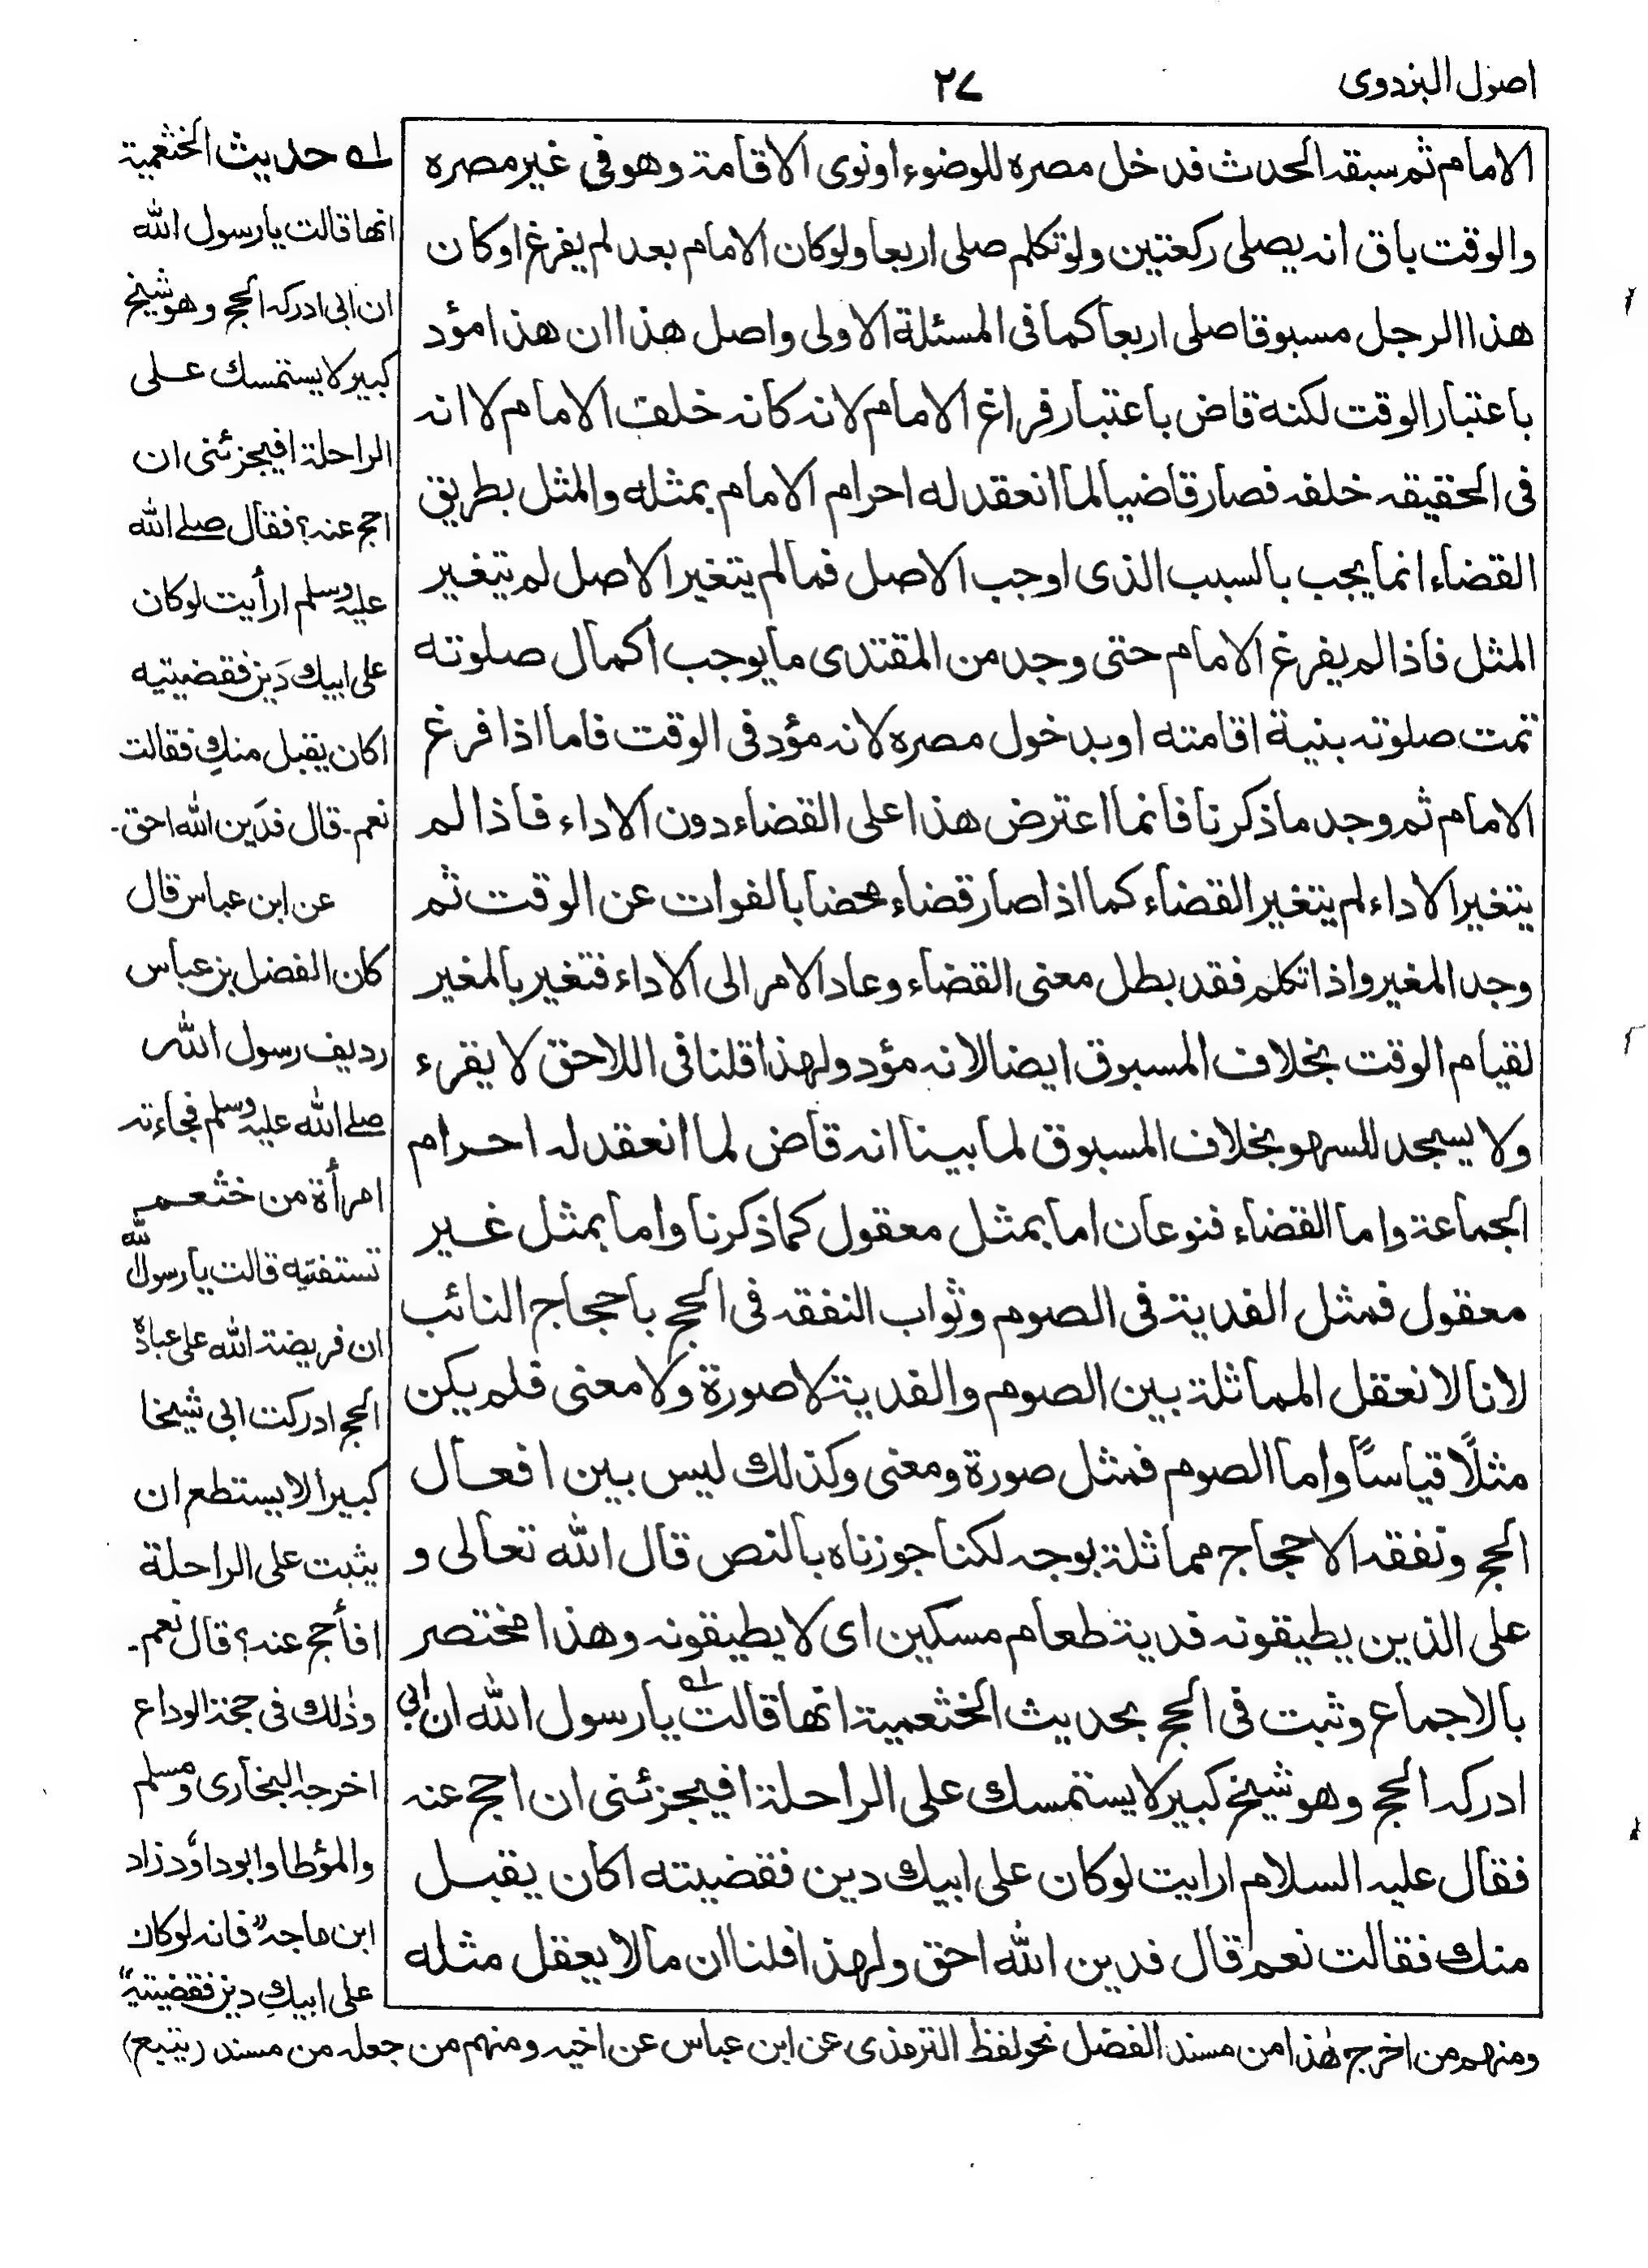 اصول البزدوى
٢٧
الامام ثم سبقه الحدث فدخل مصره للوضوء او نوى الاقامة وهو فى غير مصره
والوقت باق انه يصلى ركعتين ولو تكلم صلى اربعا ولو كان الامام بعد لم يفرغ او كان
هذا الرجل مسبوقا صلى اربعا كما فى المسئلة الاولى واصل هذا ان هذا مؤد
باعتبار الوقت لكنه قاض باعتبار فراغ الامام لانه كانه خلف الامام لا انه
فى الحقيقه خلفه فصار قاضيا لما انعقد له احرام الامام بمثله والمثل بطريق
القضاء انما يجب بالسبب الذى اوجب الاصل فما لم يتغير الاصل لم يتغير
المثل فاذا لم يفرغ الامام حتى وجد من المقتدى ما يوجب اكمال صلوته
تمت صلوته بنية اقامته او بدخول مصره لانه مؤد فى الوقت فاما اذا فرغ
الامام ثم وجد ما ذكرنا فانما اعترض هذا على القضاء دون الاداء فاذا لم
يتغير الاداء لم يتغير القضاء كما اذا صار قضاء محضا بالفوات عن الوقت ثم
وجد المغير واذا تكلم فقد بطل معنى القضاء وعاد الامر الى الاداء فتغير بالمغير
لقيام الوقت بخلاف المسبوق ايضا لانه مؤد ولهذا قلنا فى اللاحق لا يقرء
ولا يسجد للسهو بخلاف المسبوق لما بينا انه قاض لما انعقد له احرام
الجماعة واما القضاء فنوعان اما بمثل معقول كما ذكرنا واما بمثل غير
معقول فمثل الفدية فى الصوم وثواب النفقه فى الحج باحجاج النائب
لانا لا نعقل المماثلة بين الصوم والفدية لا صورة ولا معنى فلم يكن
مثلًا قياسًا واما الصوم فمثل صورة ومعنى وكذلك ليس بين افعال
الحج ونفقه الاحجاج مماثلة بوجه لكنا جوزناه بالنص قال الله تعالى و
على الذين يطيقونه فدية طعام مسكين اى لا يطيقونه وهذا مختصر
بالاجماع وثبت فى الحج بحديث الخثعمية انها قالت له يا رسول الله ان ابى
ادركه الحج وهو شيخ كبير لا يستمسك على الراحلة افيجزئنى ان احج عنه
فقال عليه السلام ارايت لو كان على ابيك دين فقضيته اكان يقبل
منك فقالت نعم قال فدين الله احق ولهذا قلنا ان ما لا يعقل مثله
له حديث الخثعمية
انها قالت يا رسول الله
ان ابى ادركه الحج وهو شيخ
كبير لا يستمسك على
الراحلة افيجزئنى ان
احج عنه؟ فقال صلے الله
عليه وسلم ارأيت لو كان
على ابيك دَين فقضيتيه
اكان يقبل منكِ فقالت
نعم۔ قال فدَين الله احق۔
عن ابن عباس قال
كان الفضل بن عباس
رديف رسول الله
صلے الله عليه وسلم فجاءته
امرأة من خثعم
تستفتيه قالت يا رسول الله
ان فريضة الله على عباده
الحج ادركت ابى شيخا
كبيرا لا يستطع ان
يثبت على الراحلة
افأحج عنه؟ قال نعم۔
وذٰلك فى حجة الوداع
اخرجه البخارى ومسلم
والمؤطا وابوداؤد زاد
ابن ماجه "فانه لو كان
على ابيكِ دين فقضيتيه"
ومنهم من اخرج هٰذا من مسند الفضل نحو لفظ الترمذى عن ابن عباس عن اخيه ومنهم من جعله من مسند (يتبع)